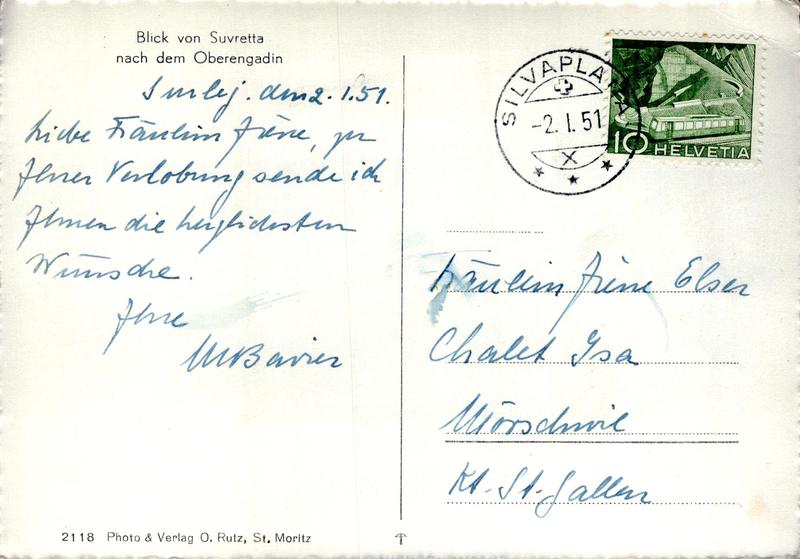 Blick von Suvretta
nach dem Oberengadin
Surlej. den 2.1.51.
Liebe Fräulein Irène, zu
Ihrer Verlobung sende ich
Ihnen die herzlichsten
Wünsche.
Ihre
MBavier
SILVAPLANA
-2.I.51
X
10 HELVETIA
Fräulein Irène Elser
Chalet Isa
Mörschwil
Kt. St. Gallen
2118 Photo & Verlag O. Rutz, St. Moritz